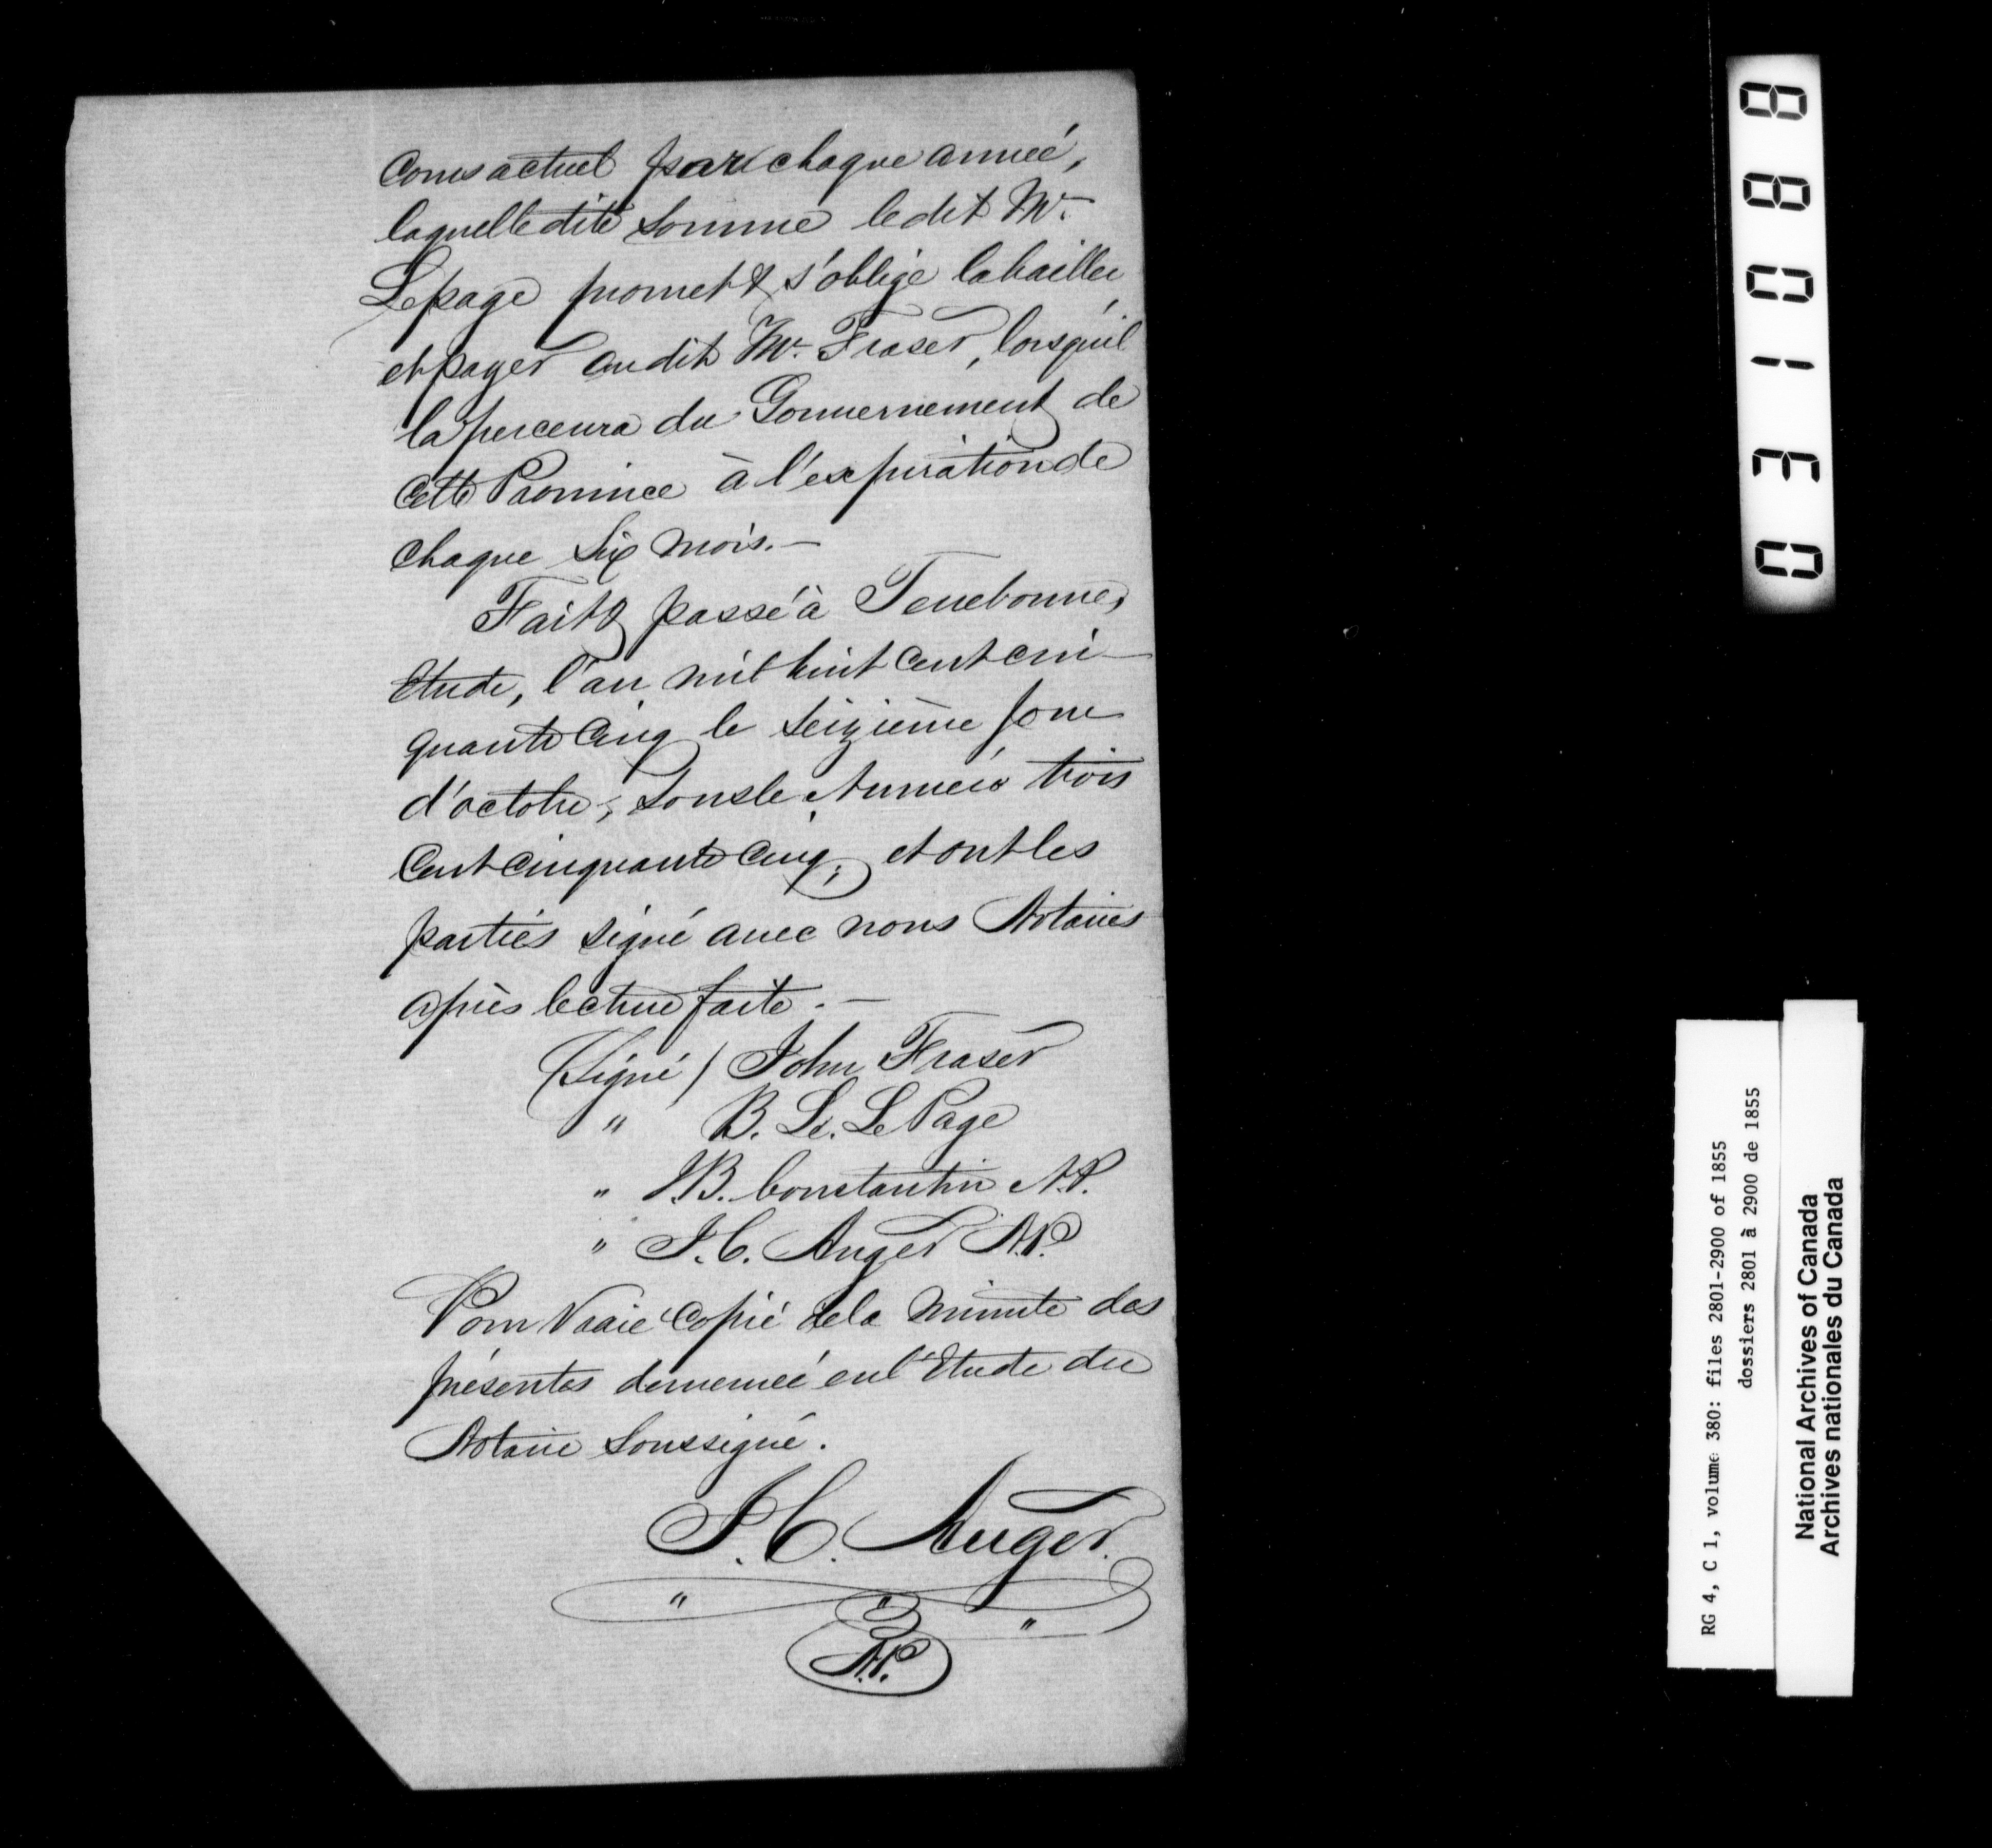 Cours actuel par chaque année,
laquelle dite Somme le dit Mr.
Lepage promet & s'oblige la bailler
et payer au dit Mr. Fraser, lorsqu'il
la percevra du Gouvernement de
Cette Province à l'expiration de
Chaque Six Mois.—
Fait & passé à Terrebonne,
Etude, l'an mil huit Cent cin-
quante Cinq le Seizième Jour
d'octobre, Sous le Numéro trois
Cent Cinquante Cinq; et ont les
parties signé avec nous Notaires
après lecture faite.—
(Signé) John Fraser
" B. Le. LePage
" J.B. Constantin N.P.
" J.C. Auger N.P.
Pour Vraie Copie de la Minute des
présentes demeurée en l'Etude du
Notaire Soussigné.
J.C. Auger.
" " "
N.P.
0 3 1 0 8 8
RG 4, C 1, volume 380: files 2801-2900 of 1855
dossiers 2801 à 2900 de 1855
National Archives of Canada
Archives nationales du Canada